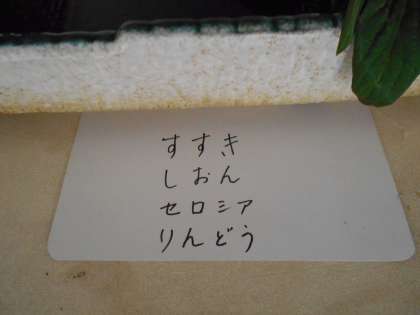 すすき
しおん
セロシア
りんどう